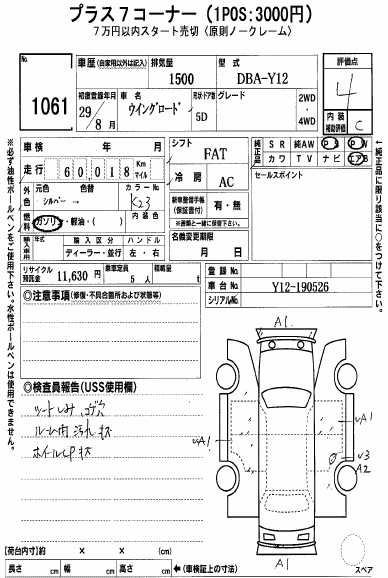 プラス7コーナー (1POS:3000円)
7万円以内スタート売切 〈原則ノークレーム〉
No. 1061
車歴(自家用以外は記入) 排気量 1500 型式 DBA-Y12
評価点 4
内装補助評価 C
初度登録年月 29/8月 車名 ウイングロード 形状・ドア数 5D グレード 2WD・4WD
※必ず油性ボールペンをご使用下さい。水性ボールペンは使用できません。
車検 年 月
シフト FAT
純正品 SR 純AW PS PW
カワ TV ナビ エアB
走行 60018 Km マイル
冷房 AC
セールスポイント
外色 元色 シルバー → 色替 カラーNo. K23
内装色
燃料 ガソリン・軽油・( )
新車整備手帳(保証書付) 有・無
※書類と一緒に保管して下さい。
輸入車用 年式 輸入区分 ディーラー・並行 ハンドル 左・右
名義変更期限 月 日
リサイクル預託金 11,630円 乗車定員 5人 積載量 t
登録No.
車台No. Y12-190526
シリアルNo.
←純正品に限り該当に○をつけて下さい。
◎注意事項(修復・不具合箇所および状態等)
◎検査員報告(USS使用欄)
シートしみ コゲ穴
ルーム内 汚れ キズ
ホイールCPキズ
A1
υA1
υA1
υ3
A2
A1
スペア
【荷台内寸】約 × × (cm)
長さ cm 幅 cm 高さ cm ←(車検証上の寸法)